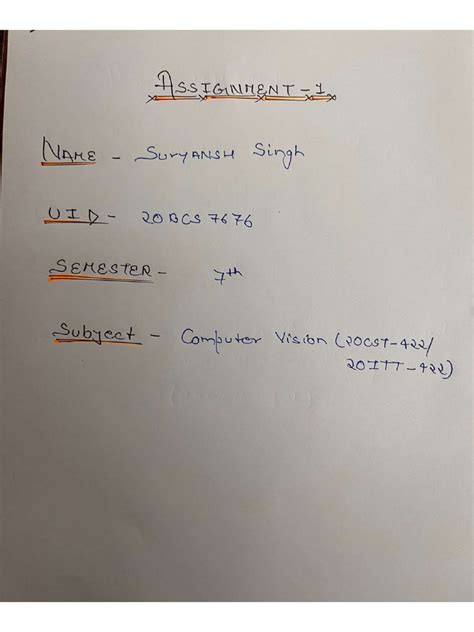 ASSIGNMENT-1
NAME - SURYANSH Singh
UID - 20BCS7676
SEMESTER - 7th
Subject - Computer Vision (20CST-422/
20ITT-422)